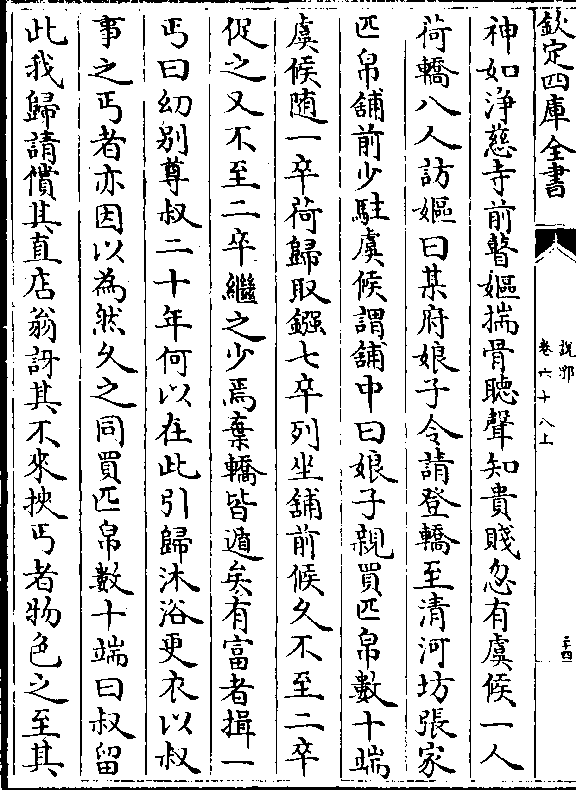 欽定四庫全書
說郛
卷六十八上
二十四
神如淨慈寺前瞽嫗揣骨聽聲知貴賤忽有虞候一人
荷轎八人訪嫗曰某府娘子令請登轎至清河坊張家
匹帛舖前少駐虞候謂舖中曰娘子親買匹帛數十端
虞候隨一卒荷歸取鏹七卒列坐舖前候久不至二卒
促之又不至二卒繼之少焉棄轎皆遁矣有富者揖一
丐曰幼別尊叔二十年何以在此引歸沐浴更衣以叔
事之丐者亦因以為然久之同買匹帛數十端曰叔留
此我歸請償其直店翁訝其不來挾丐者物色之至其